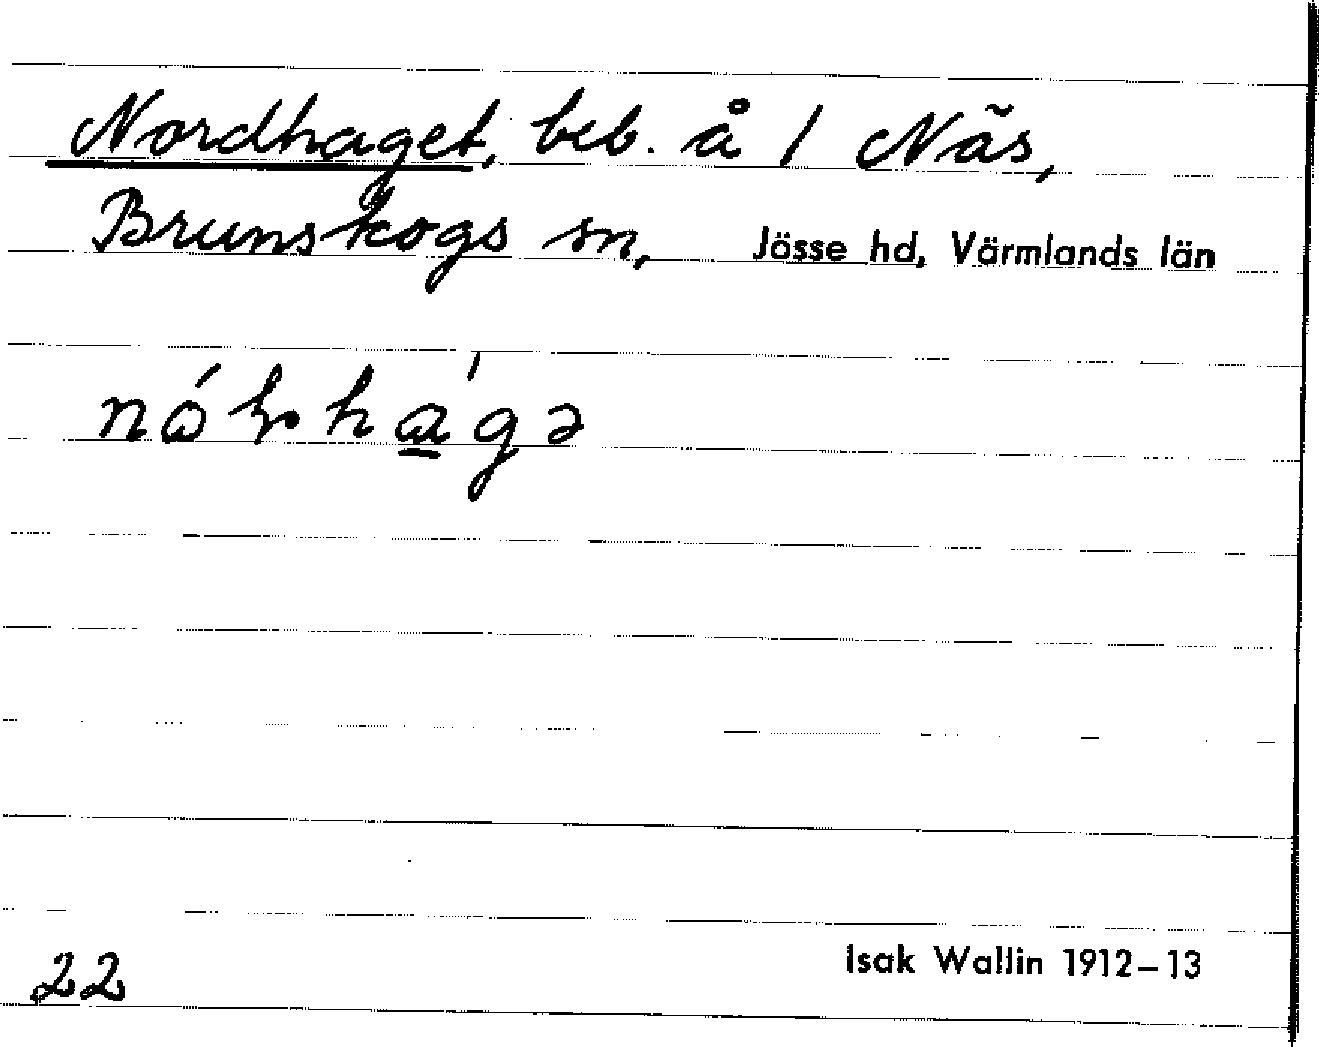 Nordhaget, beb. å 1 Näs,
Brunskogs sn, Jösse hd, Värmlands län
22
Isak Wallin 1912–13